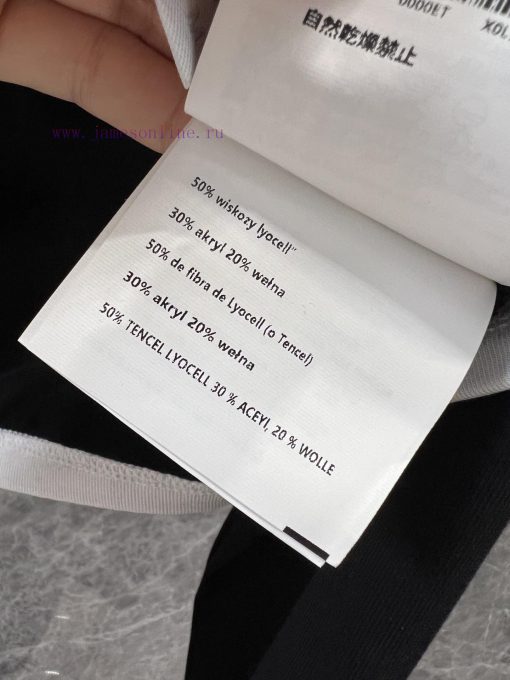 0000ET
自然乾燥禁止
www.jamesonline.ru
50% wiskozy lyocell"
30% akryl 20% wełna
50% de fibra de Lyocell (o Tencel)
30% akryl 20% wełna
50% TENCEL LYOCELL 30 % ACEYI, 20 % WOLLE